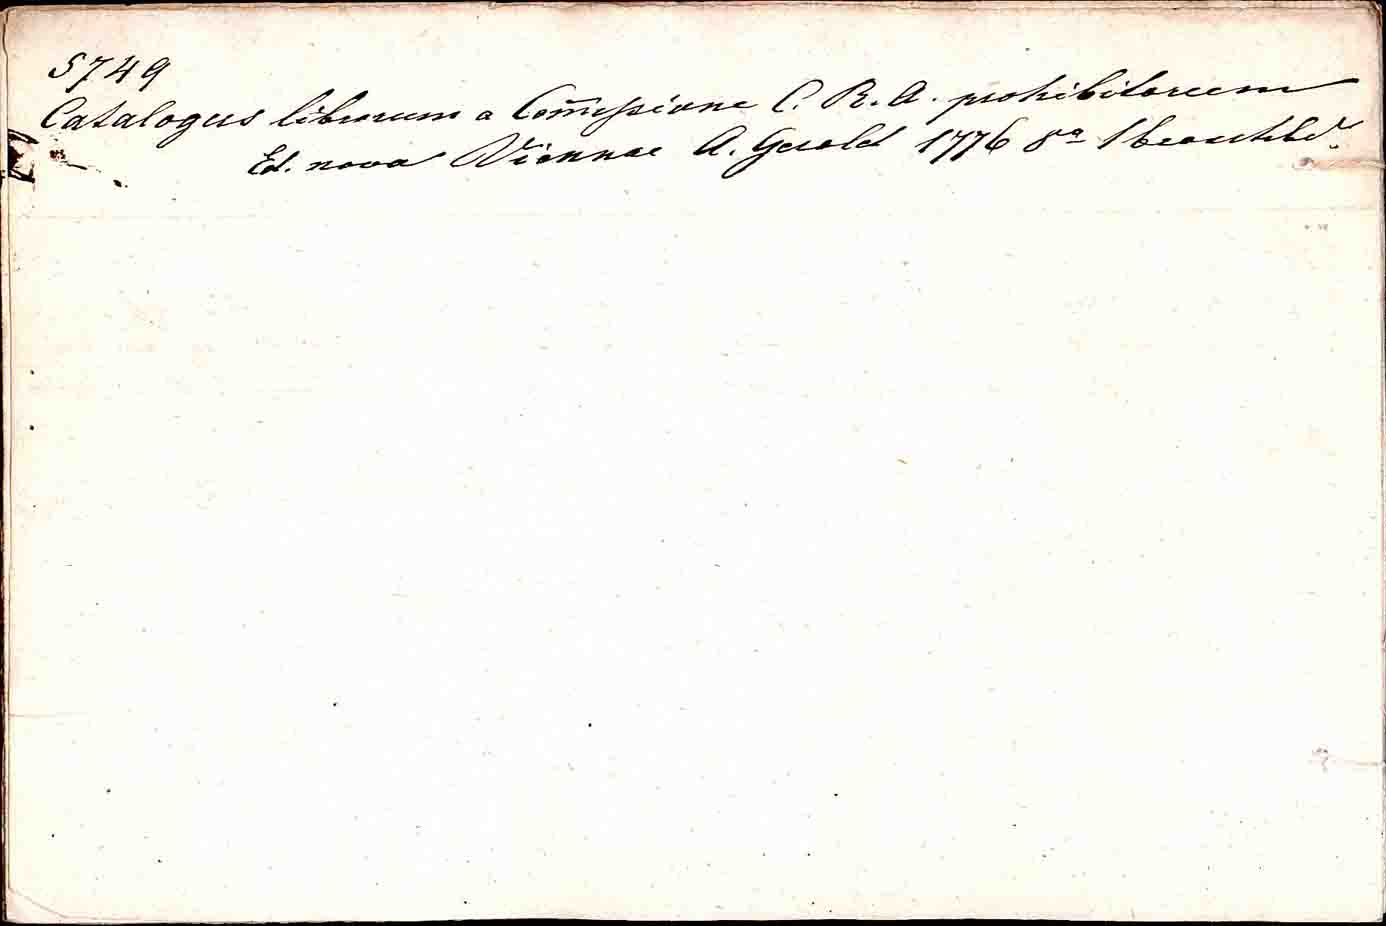 5749
Catalogus librorum a Com̄issione C. R. A. prohibitorum
Ed. nova Viennae A. Gerold 1776 8ª 1